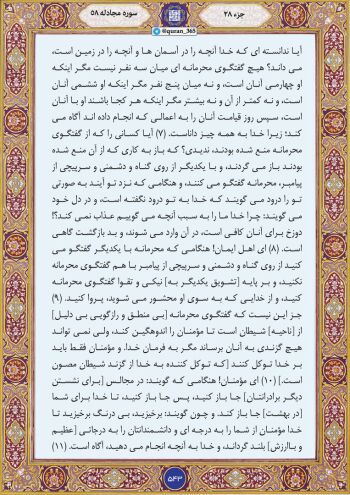 جزء ۲۸
سوره مجادله ۵۸
@quran_365
آیا ندانسته ای که خدا آنچه را در آسمان ها و آنچه را در زمین است،
می داند؟ هیچ گفتگوی محرمانه ای میان سه نفر نیست مگر اینکه
او چهارمی آنان است، و نه میان پنج نفر مگر اینکه او ششمی آنان
است، و نه کمتر از آن و نه بیشتر مگر اینکه هر کجا باشند او با آنان
است، سپس روز قیامت آنان را به اعمالی که انجام داده اند آگاه می
کند؛ زیرا خدا به همه چیز داناست. (۷) آیا کسانی را که از گفتگوی
محرمانه منع شده بودند، ندیدی؟ که باز به کاری که از آن منع شده
بودند باز می گردند، و با یکدیگر از روی گناه و دشمنی و سرپیچی از
پیامبر، محرمانه گفتگو می کنند، و هنگامی که نزد تو آیند به صورتی
تو را درود می گویند که خدا به تو درود نگفته است، و در دل خود
می گویند: چرا خدا ما را به سبب آنچه می گوییم عذاب نمی کند؟!
دوزخ برای آنان کافی است، در آن وارد می شوند، و بد بازگشت گاهی
است. (۸) ای اهل ایمان! هنگامی که محرمانه با یکدیگر گفتگو می
کنید از روی گناه و دشمنی و سرپیچی از پیامبر با هم گفتگوی محرمانه
نکنید، و بر پایه [تشویق یکدیگر به] نیکی و تقوا گفتگوی محرمانه
کنید، و از خدایی که به سوی او محشور می شوید، پروا کنید. (۹)
جز این نیست که گفتگوی محرمانه [بی منطق و رازگویی بی دلیل]
از [ناحیه] شیطان است تا مؤمنان را اندوهگین کند، ولی نمی تواند
هیچ گزندی به آنان برساند مگر به فرمان خدا. و مؤمنان فقط باید
بر خدا توکل کنند [که توکل کننده به خدا از گزند شیطان مصون
است.] (۱۰) ای مؤمنان! هنگامی که گویند: در مجالس [برای نشستن
دیگر برادرانتان] جا باز کنید، پس جا باز کنید، تا خدا برای شما
[در بهشت] جا باز کند. و چون گویند: برخیزید، بی درنگ برخیزید تا
خدا مؤمنان از شما را به درجه ای و دانشمندانتان را به درجاتی [عظیم
و باارزش] بلند گرداند، و خدا به آنچه انجام می دهید، آگاه است. (۱۱)
۵۴۳